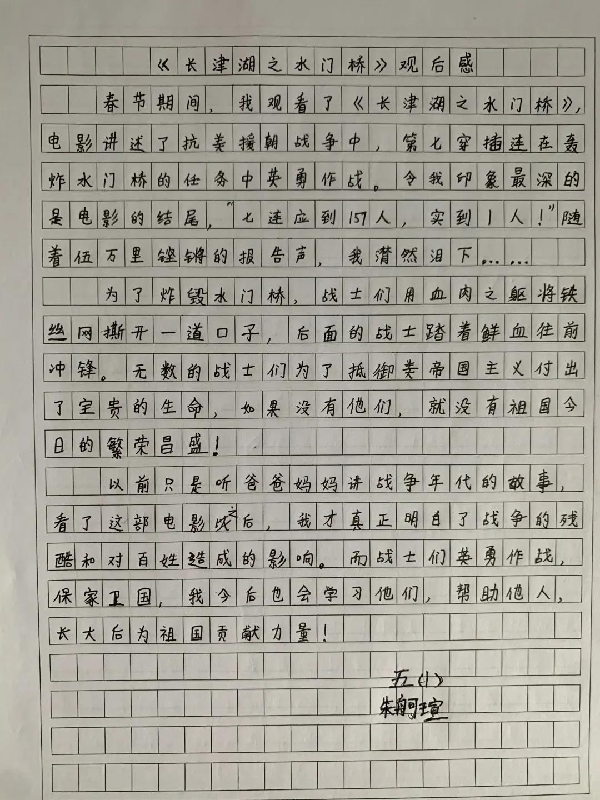 《长津湖之水门桥》观后感
春节期间，我观看了《长津湖之水门桥》，
电影讲述了抗美援朝战争中，第七穿插连在轰
炸水门桥的任务中英勇作战。令我印象最深的
是电影的结尾，“七连应到157人，实到1人！”随
着伍万里铿锵的报告声，我潸然泪下……
为了炸毁水门桥，战士们用血肉之躯将铁
丝网撕开一道口子，后面的战士踏着鲜血往前
冲锋。无数的战士们为了抵御美帝国主义付出
了宝贵的生命，如果没有他们，就没有祖国今
日的繁荣昌盛！
以前只是听爸爸妈妈讲战争年代的故事，
看了这部电影之后，我才真正明白了战争的残
酷和对百姓造成的影响。而战士们英勇作战，
保家卫国，我今后也会学习他们，帮助他人，
长大后为祖国贡献力量！
五（1）
朱舸瑄